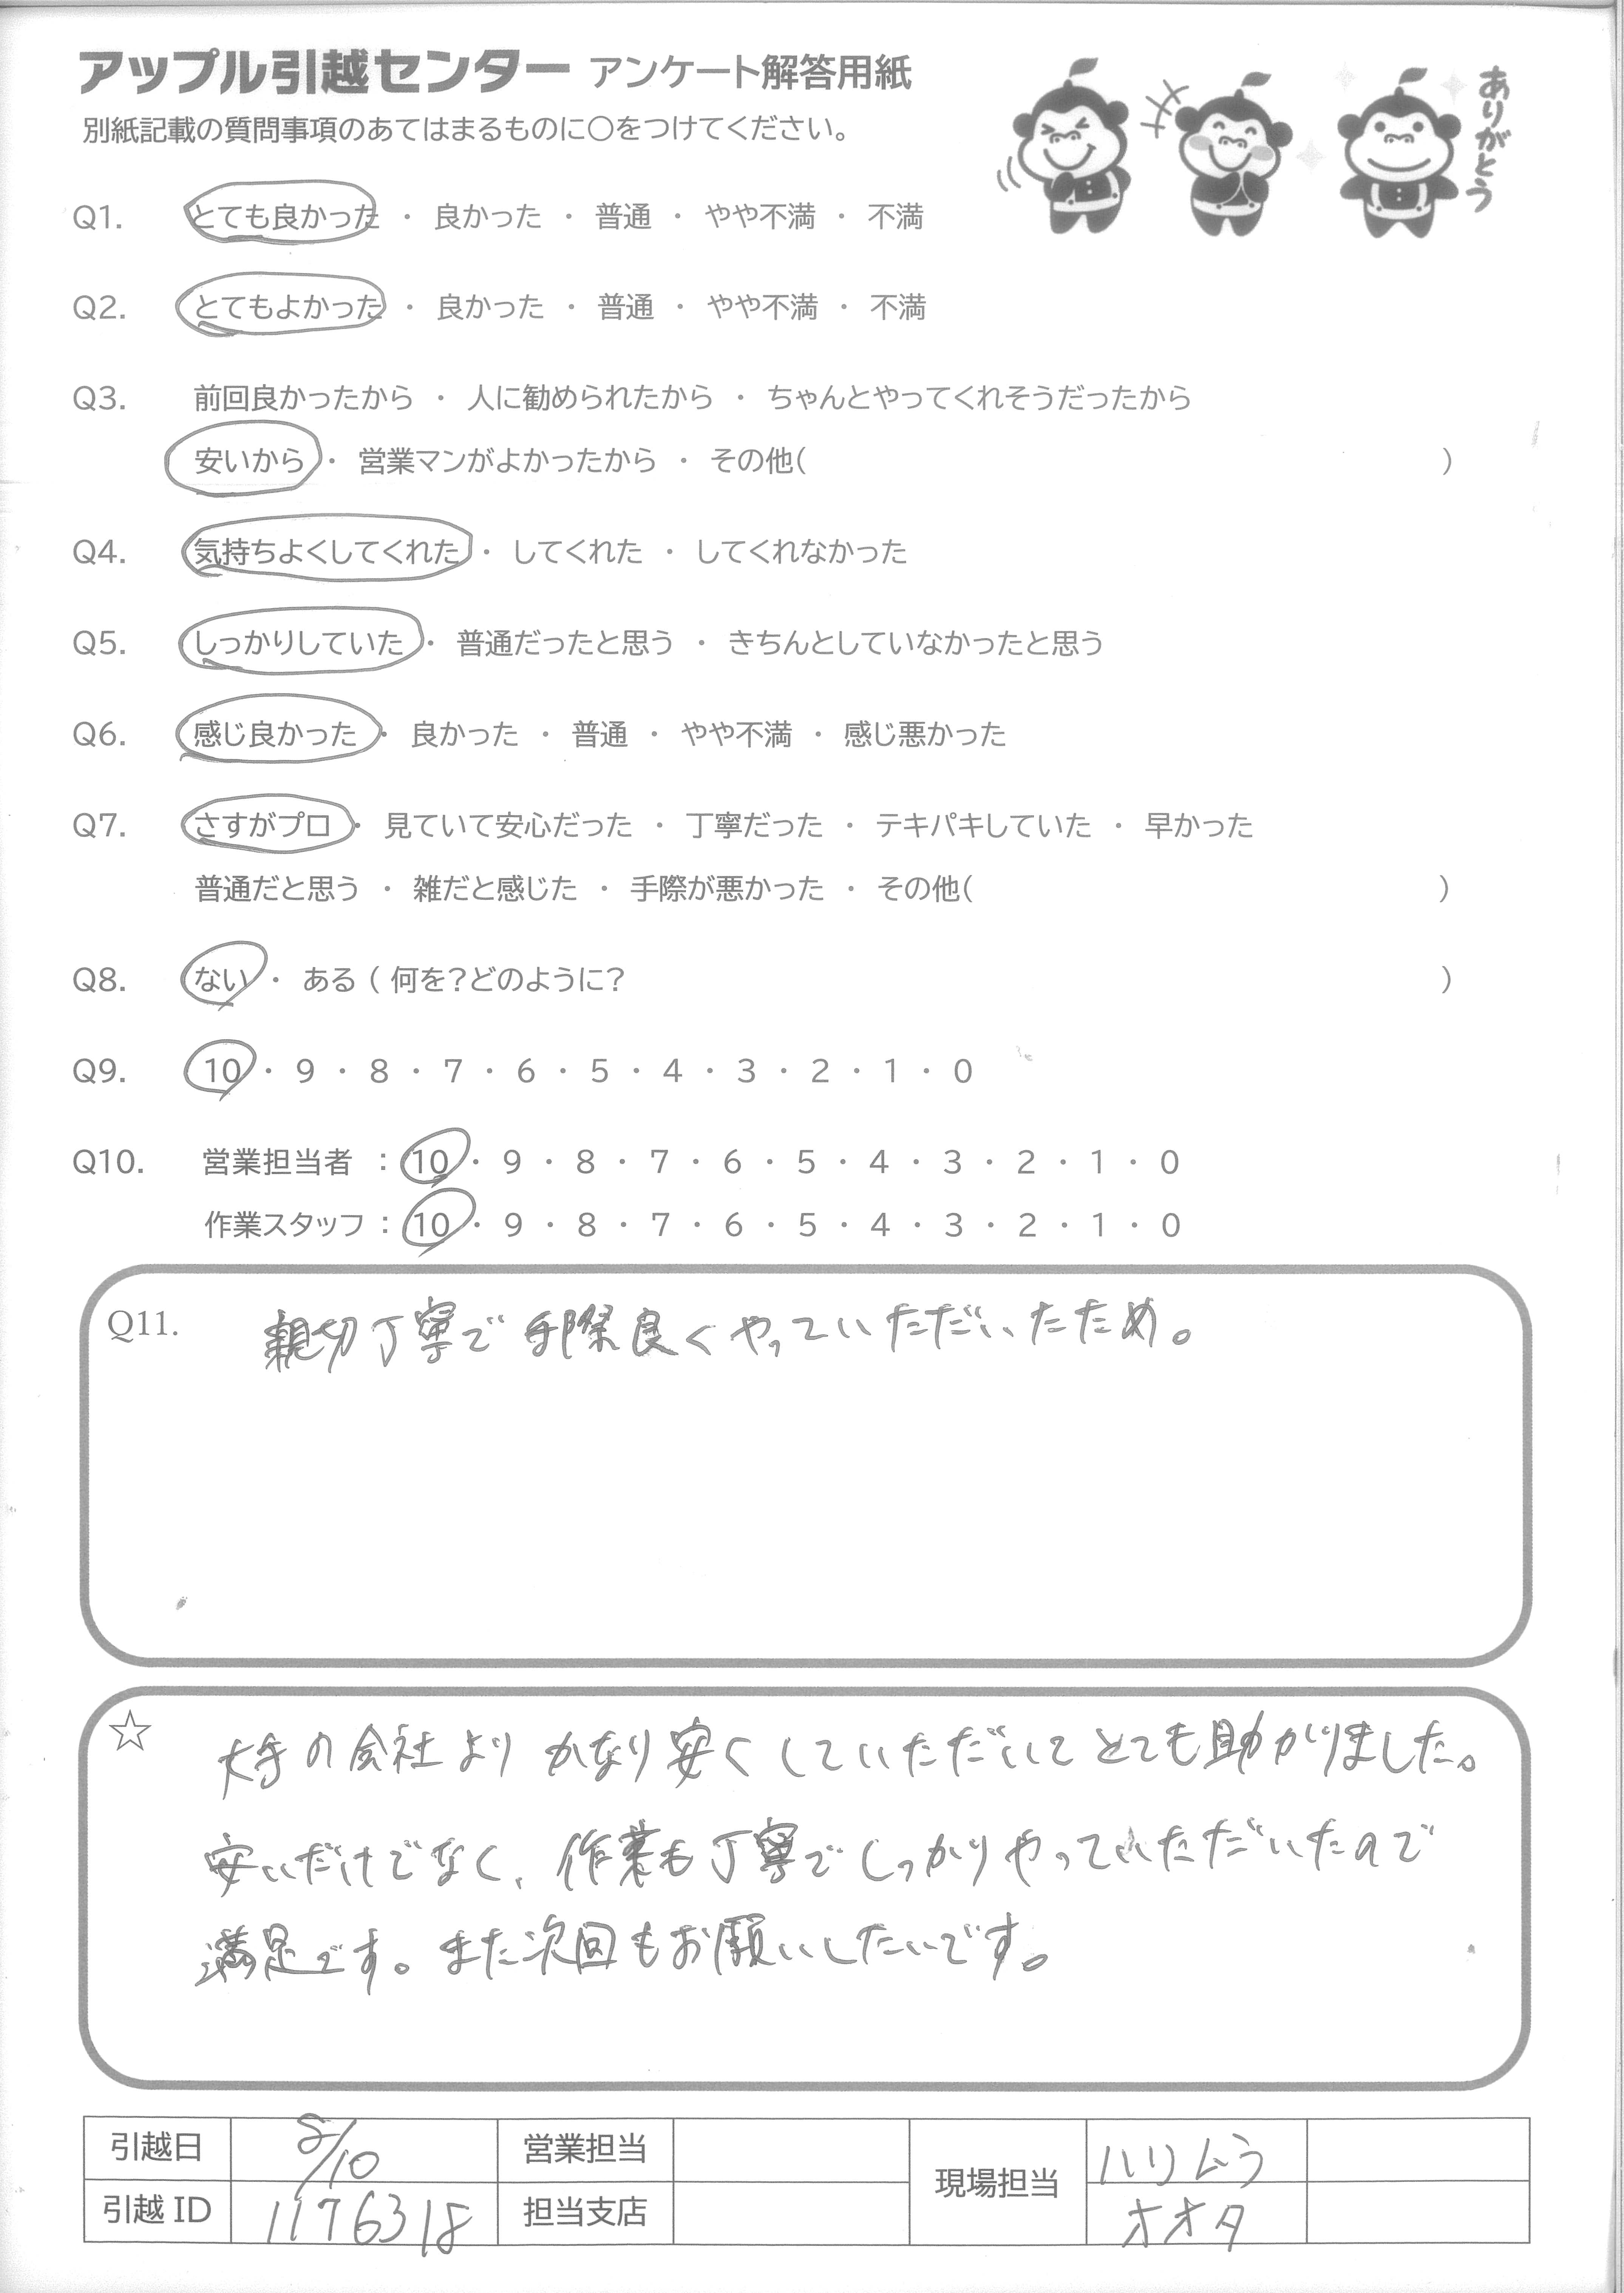 アップル引越センター アンケート解答用紙
別紙記載の質問事項のあてはまるものに○をつけてください。
ありがとう
Q1. とても良かった ・ 良かった ・ 普通 ・ やや不満 ・ 不満
Q2. とてもよかった ・ 良かった ・ 普通 ・ やや不満 ・ 不満
Q3. 前回良かったから ・ 人に勧められたから ・ ちゃんとやってくれそうだったから
安いから ・ 営業マンがよかったから ・ その他( )
Q4. 気持ちよくしてくれた ・ してくれた ・ してくれなかった
Q5. しっかりしていた ・ 普通だったと思う ・ きちんとしていなかったと思う
Q6. 感じ良かった ・ 良かった ・ 普通 ・ やや不満 ・ 感じ悪かった
Q7. さすがプロ ・ 見ていて安心だった ・ 丁寧だった ・ テキパキしていた ・ 早かった
普通だと思う ・ 雑だと感じた ・ 手際が悪かった ・ その他( )
Q8. ない ・ ある ( 何を?どのように? )
Q9. 10 ・ 9 ・ 8 ・ 7 ・ 6 ・ 5 ・ 4 ・ 3 ・ 2 ・ 1 ・ 0
Q10. 営業担当者 : 10 ・ 9 ・ 8 ・ 7 ・ 6 ・ 5 ・ 4 ・ 3 ・ 2 ・ 1 ・ 0
作業スタッフ : 10 ・ 9 ・ 8 ・ 7 ・ 6 ・ 5 ・ 4 ・ 3 ・ 2 ・ 1 ・ 0
Q11. 親切丁寧で手際良くやっていただいたため。
☆ 大手の会社よりかなり安くしていただいてとても助かりました。
安いだけでなく、作業も丁寧でしっかりやっていただいたので
満足です。また次回もお願いしたいです。
引越日 8/10 営業担当 現場担当 ハリムラ
引越ID 1176318 担当支店 オオタ